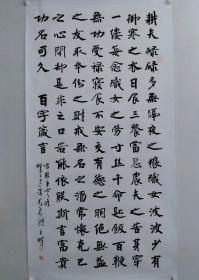 耕夫碌碌多無隔夜之糧織女波波少有
御寒之衣日食三餐當思農夫之苦身穿
一縷每念織女之勞寸絲千命匙飯百鞭
無功受祿寢食不安交有德之朋絕無益
之友取本份之財戒無名之酒常懷克己
之心閉却是非之口若能依朕斯言富貴
功名可久 百字箴言